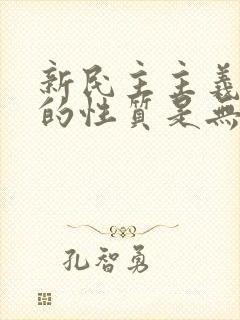 新民主主義
的性質是無
孔智勇